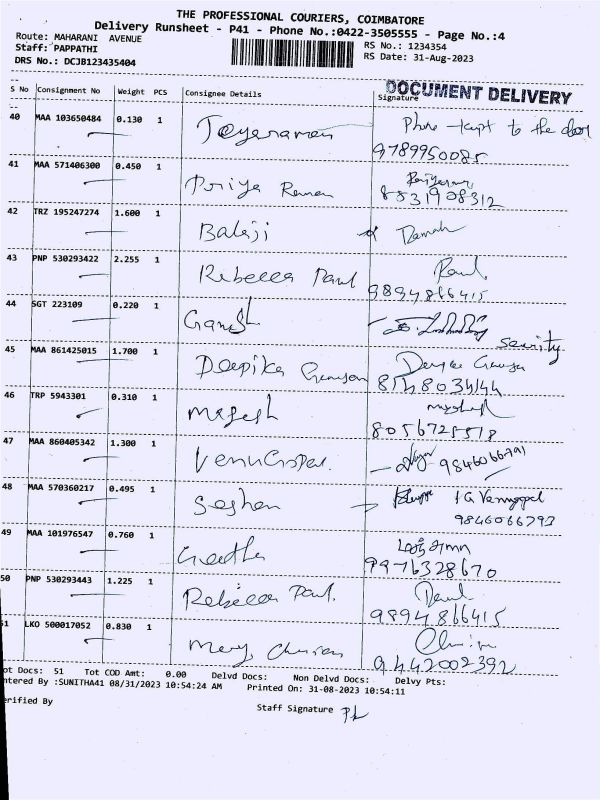 THE PROFESSIONAL COURIERS, COIMBATORE
Delivery Runsheet - P41 - Phone No.:0422-3505555 - Page No.:4
Route: MAHARANI AVENUE
RS No.: 1234354
Staff: PAPPATHI
RS Date: 31-Aug-2023
DRS No.: DCJB123435404
DOCUMENT DELIVERY
S No Consignment No Weight PCS Consignee Details Signature
40 MAA 103650484 0.130 1 Jeyaraman Phone kept to the door
9789950085
41 MAA 571406300 0.450 1 Priya Raman
8531908312
42 TRZ 195247274 1.600 1 Balaji
43 PNP 530293422 2.255 1 Rebecca Paul Paul
9894866415
44 SGT 223109 0.220 1 Ganesh
security
45 MAA 861425015 1.700 1 Deepika
8148034144
46 TRP 5943301 0.310 1 Magesh
8056725518
47 MAA 860405342 1.300 1 Venugopal 9846066791
48 MAA 570360217 0.495 1 Seshan
9846066793
49 MAA 101976547 0.760 1 Geetha
9976328670
50 PNP 530293443 1.225 1 Rebecca Paul Paul
9894866415
51 LKO 500017052 0.830 1 Mary
9442002392
ot Docs: 51 Tot COD Amt: 0.00 Delvd Docs: Non Delvd Docs: Delvy Pts:
ntered By :SUNITHA41 08/31/2023 10:54:24 AM Printed On: 31-08-2023 10:54:11
erified By
Staff Signature